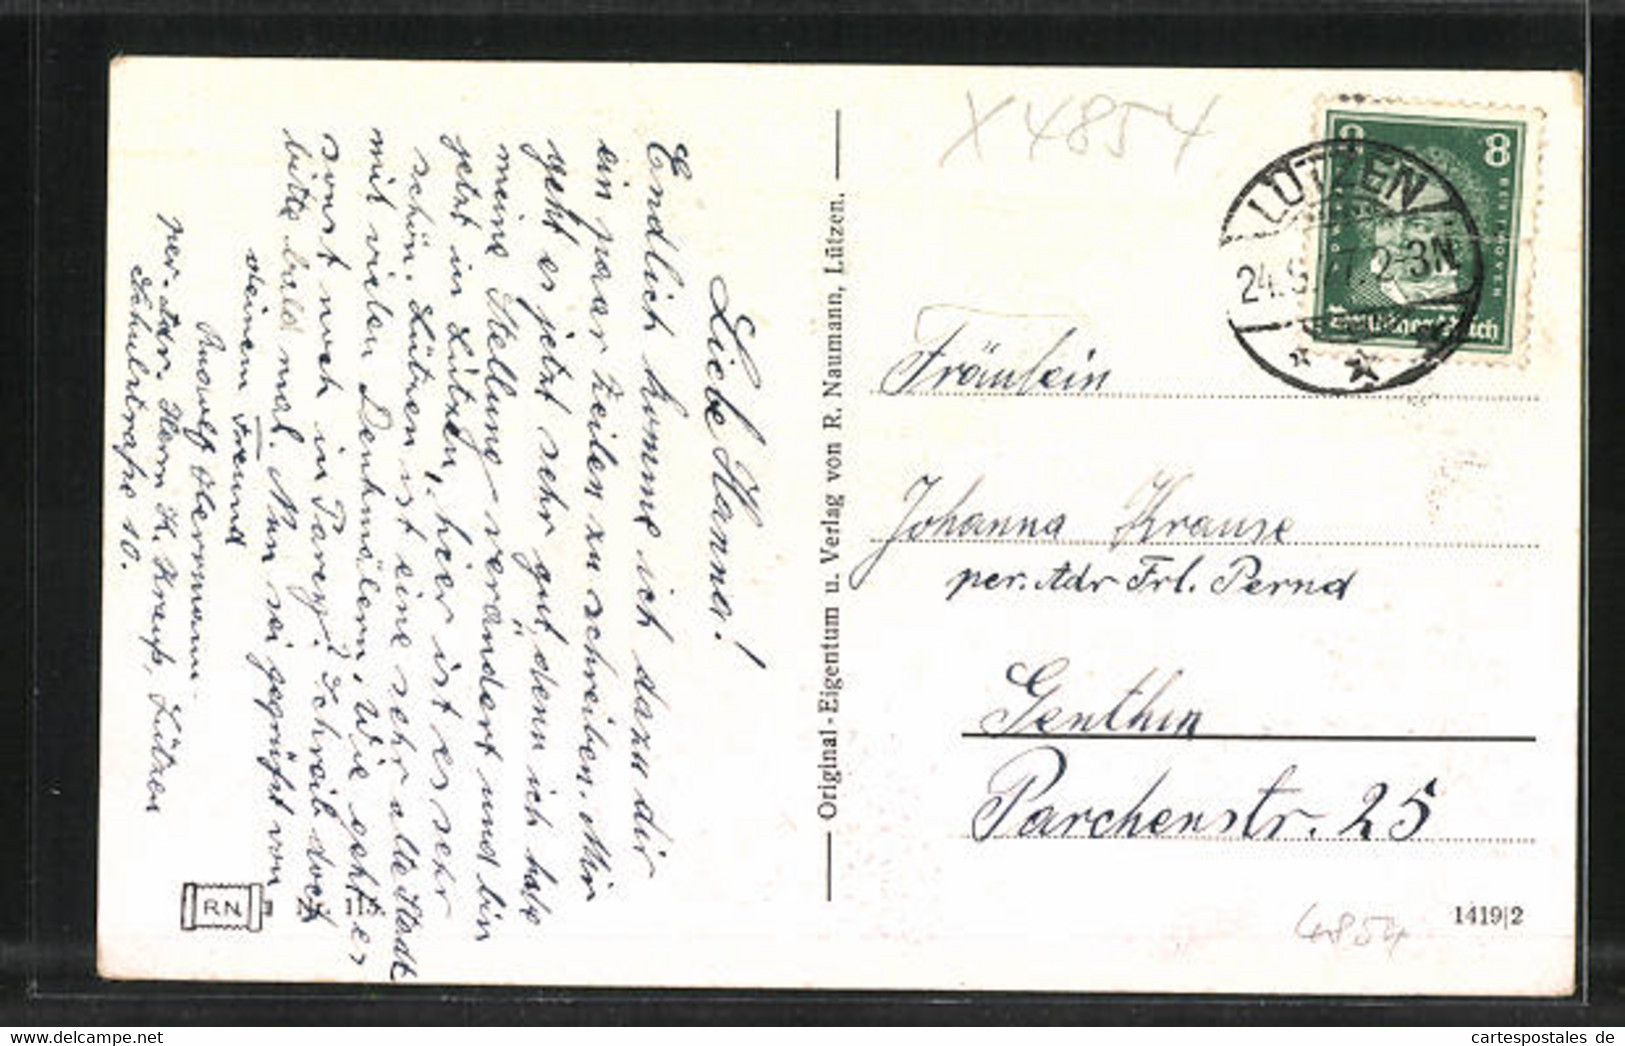 Liebe Hanna!
Endlich komme ich dazu dir
ein paar Zeilen zu schreiben. Mir
geht es jetzt sehr gut, denn ich habe
meine Stellung verändert und bin
jetzt in Lützen, hier ist es sehr
schön. Lützen ist eine sehr alte Stadt
mit vielen Denkmälern. Wie geht es
sonst noch in Parey? Schreib doch
bitte bald mal. Nun sei gegrüßt von
deinem Freund
Rudolf Hermann.
per. Adr. Herrn K. Krauß, Lützen
Schulstraße 10.
RN
115
Original-Eigentum u. Verlag von R. Naumann, Lützen.
X 4854
8
BEETHOVEN
Deutsches Reich
LÜTZEN
2-3N
Fräulein
Johanna Krause
per. Adr Frl. Pernd
Genthin
Parchenstr. 25
1419|2
4854
cartespostales de